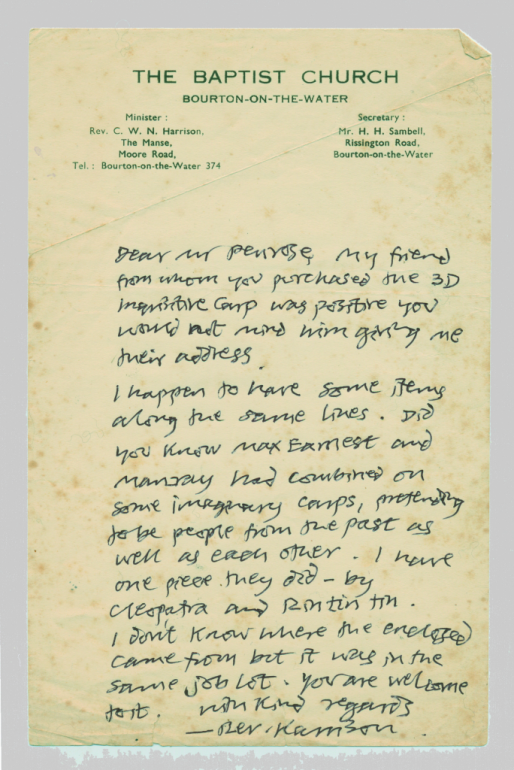 THE BAPTIST CHURCH
BOURTON-ON-THE-WATER
Minister :
Rev. C. W. N. Harrison,
The Manse,
Moore Road,
Tel. : Bourton-on-the-Water 374
Secretary :
Mr. H. H. Sambell,
Rissington Road,
Bourton-on-the-Water
Dear Mr Penrose, My friend
from whom you purchased the 3D
Inquisitive Carp was positive you
would not mind him giving me
their address.
I happen to have some items
along the same lines. Did
you know Max Earnest and
Manray had combined on
some imaginary carps, pretending
to be people from the past as
well as each other. I have
one piece they did - by
Cleopatra and Rintintin.
I don't know where the enclosed
came from but it was in the
same job lot. You are welcome
to it. With kind regards
— Rev. Harrison.